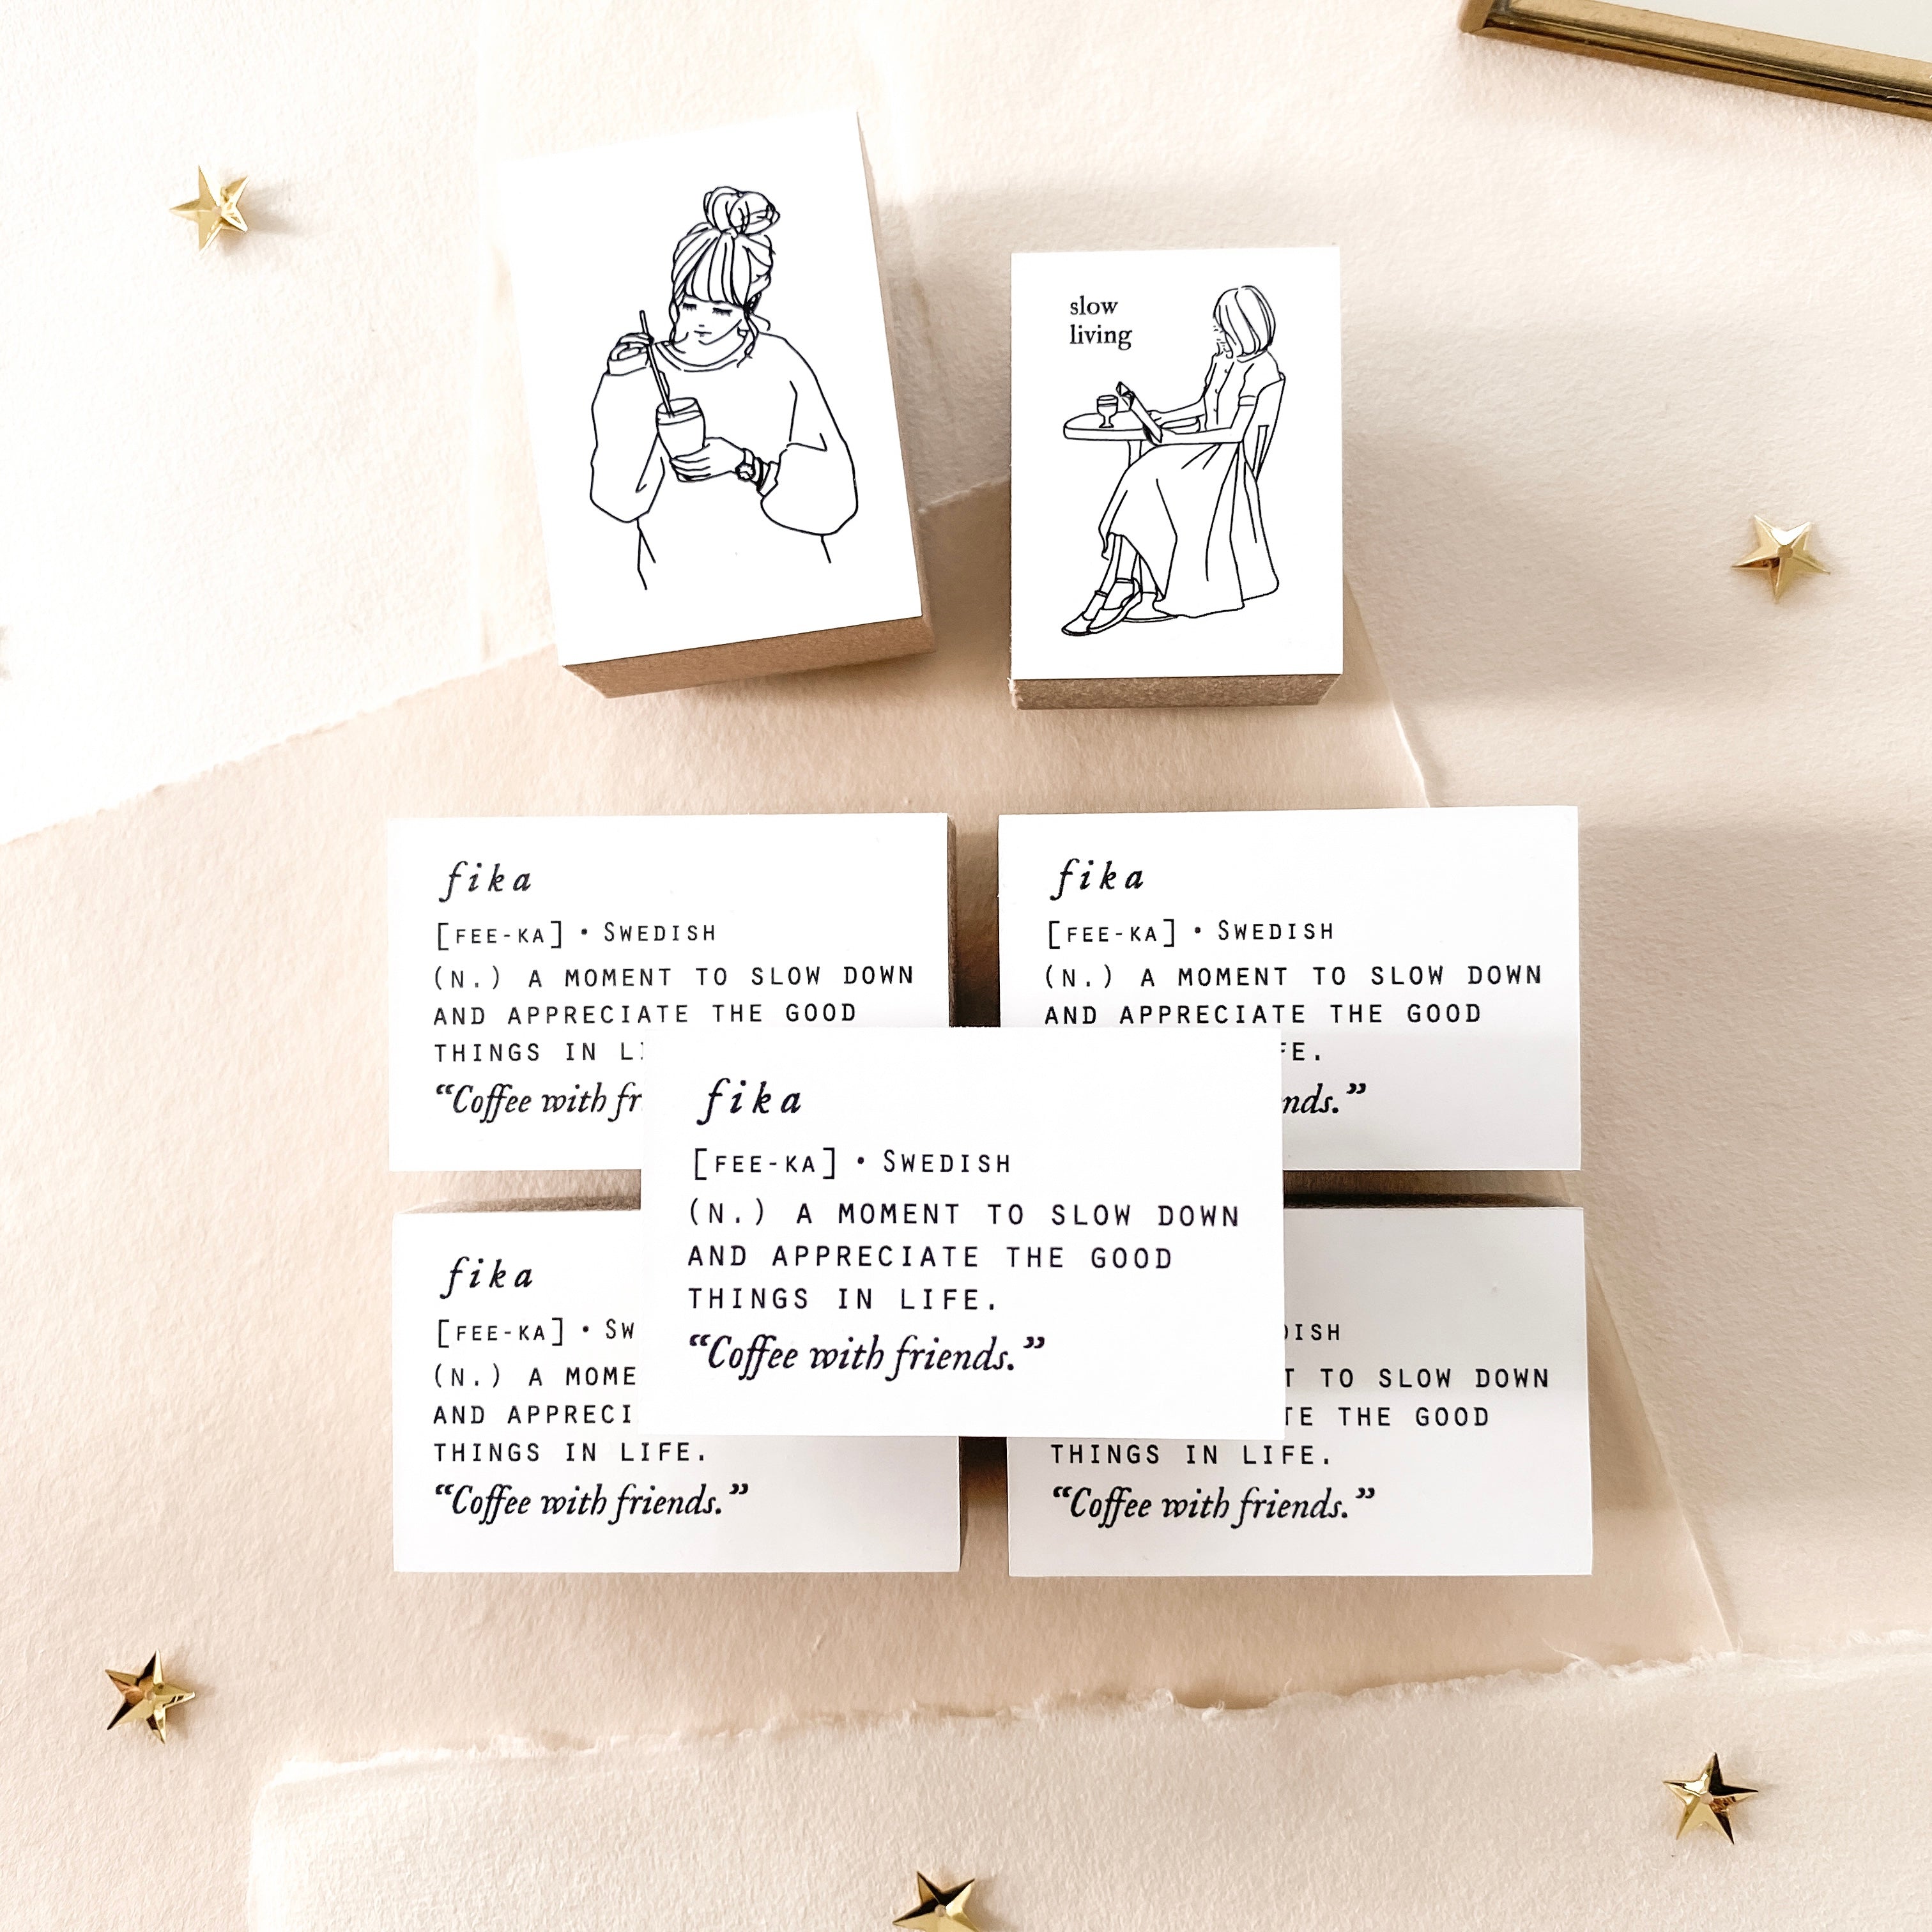 slow
living
fika
[FEE-KA] • SWEDISH
(N.) A MOMENT TO SLOW DOWN
AND APPRECIATE THE GOOD
THINGS IN
"Coffee with
fika
[FEE-KA] • SWEDISH
(N.) A MOMENT TO SLOW DOWN
AND APPRECIATE THE GOOD
fika
[FEE-KA] • SWEDISH
(N.) A MOMENT TO SLOW DOWN
AND APPRECIATE THE GOOD
THINGS IN LIFE.
“Coffee with friends.”
fika
[FEE-KA] •
(N.) A
AND
THINGS IN LIFE.
“Coffee with friends.”
TO SLOW DOWN
THE GOOD
THINGS IN LIFE.
“Coffee with friends.”